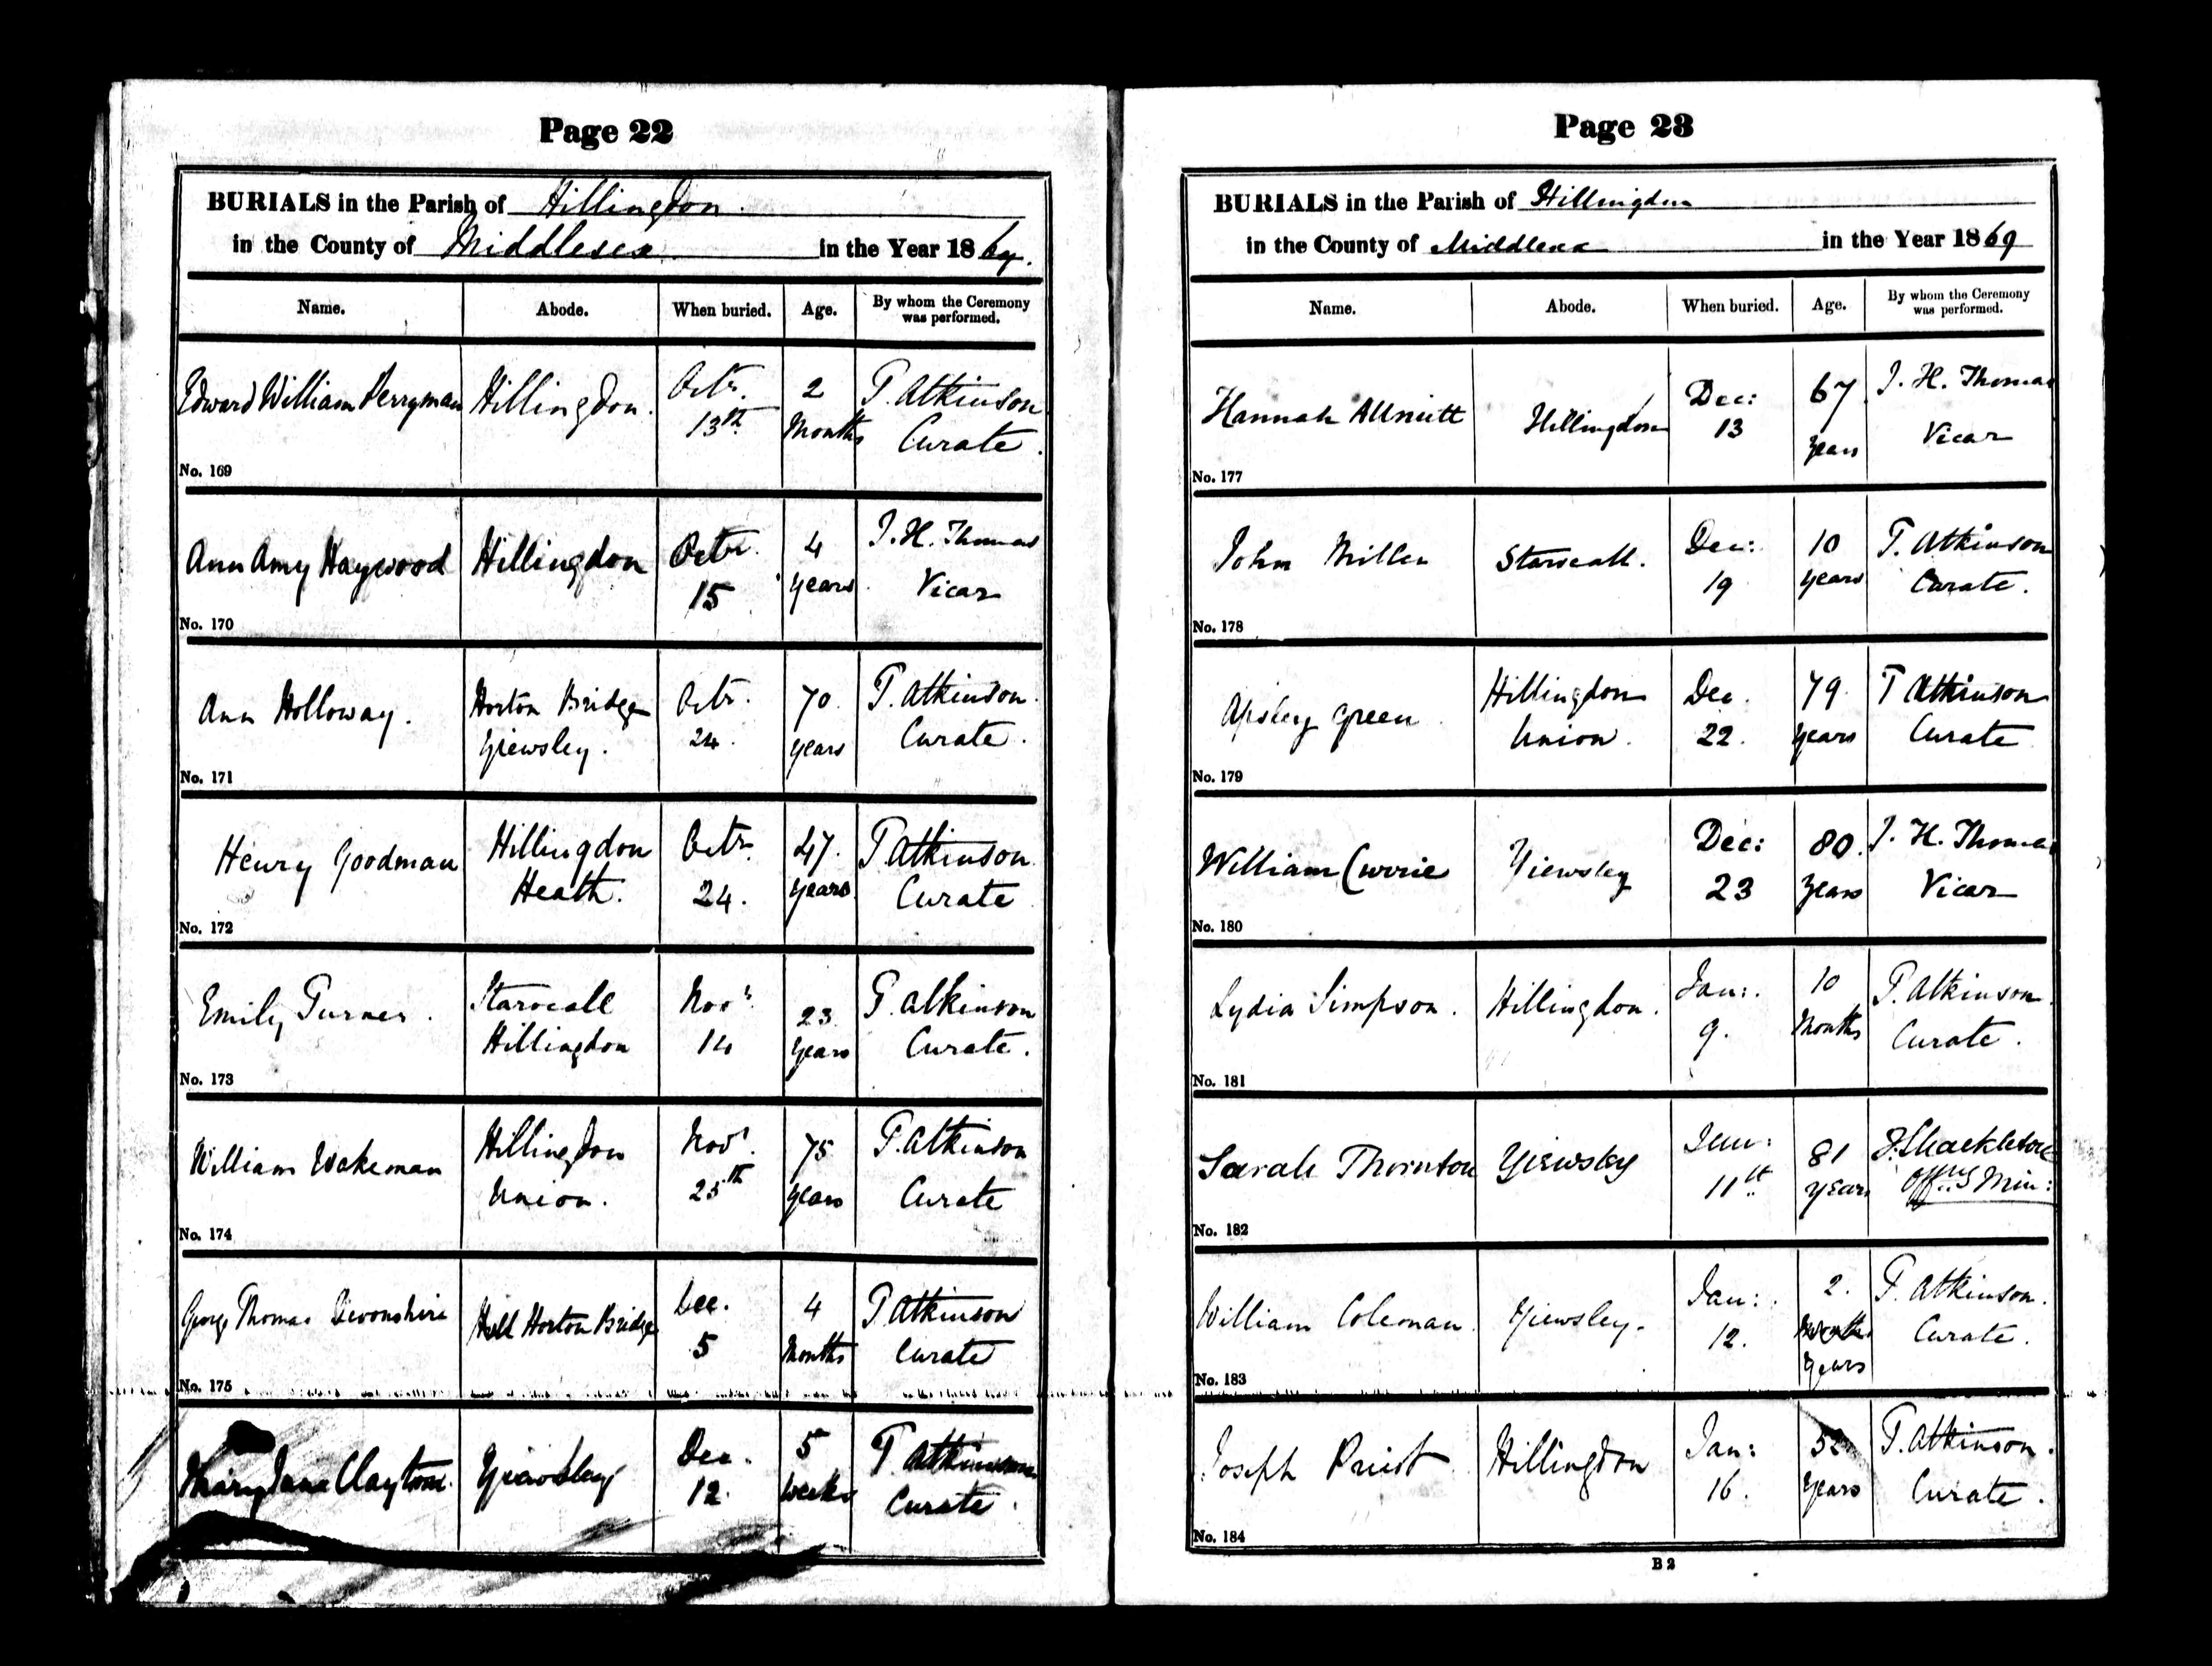 Page 22
BURIALS in the Parish of Hillingdon.
in the County of Middlesex. in the Year 1869.
Name. Abode. When buried. Age. By whom the Ceremony was performed.
Edward William Perryman Hillingdon. Octr. 13th 2 Months T. Atkinson Curate.
No. 169
Ann Amy Haywood Hillingdon Octr. 15 4 years J. H. Thomas Vicar
No. 170
Ann Holloway. Horton Bridge Yiewsley. Octr. 24. 70 years T. Atkinson. Curate.
No. 171
Henry Goodman Hillingdon Heath. Octr. 24. 47. years T. Atkinson. Curate
No. 172
Emily Turner. Starveall Hillingdon Novr 14 23 years T. Atkinson Curate.
No. 173
William Wakeman Hillingdon Union. Novr. 25th 75 years T. Atkinson Curate
No. 174
George Thomas Devonshire Horton Bridge Dec. 5 4 Months T Atkinson Curate
No. 175
Mary Jane Clayton. Yiewsley Dec. 12. 5 weeks T. Atkinson Curate.
Page 23
BURIALS in the Parish of Hillingdon
in the County of Middlesex in the Year 1869
Name. Abode. When buried. Age. By whom the Ceremony was performed.
Hannah Allnutt Hillingdon Dec: 13 67 years J. H. Thomas Vicar
No. 177
John Miller Starveall. Dec: 19 10 years T. Atkinson Curate.
No. 178
Apsley Green Hillingdon Union. Dec. 22. 79 years T Atkinson Curate
No. 179
William Currie Yiewsley Dec: 23 80. years J. H. Thomas Vicar
No. 180
Lydia Simpson. Hillingdon. Jan: 9. 10 Months T. Atkinson. Curate.
No. 181
Sarah Thornton Yiewsley Jan: 11th 81 years J. Shackleton Offg Min:
No. 182
William Coleman. Yiewsley. Jan: 12. 2. Months years T. Atkinson. Curate.
No. 183
Joseph Priest Hillingdon Jan: 16. 52 years T. Atkinson. Curate.
No. 184
B 2